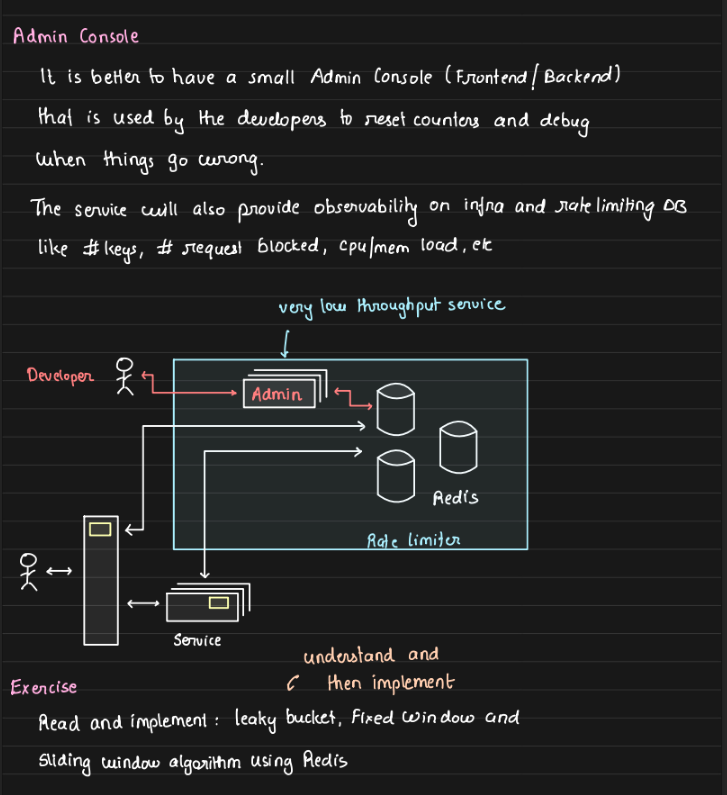 Admin Console
It is better to have a small Admin Console (Frontend/Backend)
that is used by the developers to reset counters and debug
when things go wrong.
The service will also provide observability on infra and rate limiting DB
like #keys, # request blocked, cpu/mem load, etc
very low throughput service
Developer
Admin
Redis
Rate limiter
Service
understand and
then implement
Exercise
Read and implement: leaky bucket, Fixed window and
Sliding window algorithm using Redis